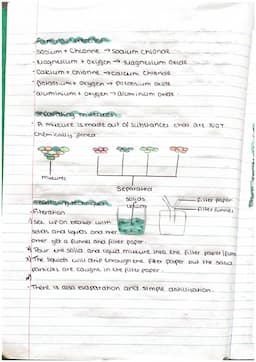 Forming reactions
- Sodium + Chlorine → Sodium Chloride
- Magnesium + Oxygen → Magnesium Oxide
- Calcium + Chlorine → Calcium Chloride
- Potassium + Oxygen → Potassium Oxide
- Aluminium + Oxygen → aluminium oxide
Separating mixtures
- A mixture is made out of substances that are NOT
chemically joined
mixture
Separated
solids
filter paper
filter funnel
techniques
- Filteration
1) Set up an beaker with
solids and liquids and then
other get a funnel and filter paper.
Pour the solid and liquid mixture into the filter paper
The liquids will drip through the filter paper but the solid
particles are caught in the filter paper.
- There is also evaporation and simple distillation.